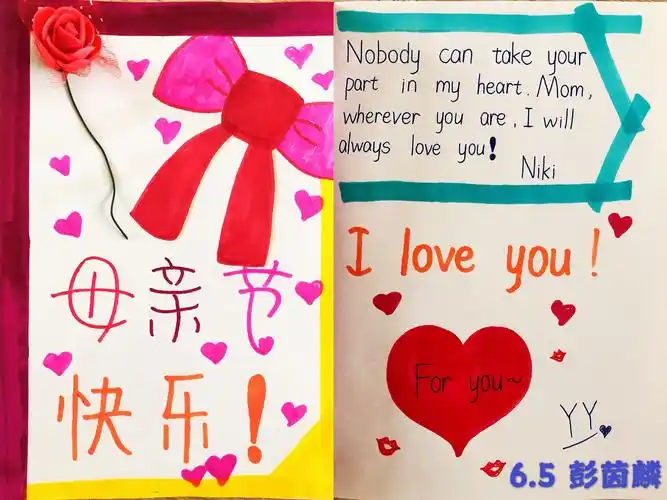 母亲节
快乐！
Nobody can take your
part in my heart. Mom,
wherever you are, I will
always love you!
Niki
I love you!
For you~
YY
6.5 彭茵麟